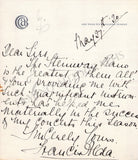 May 27th 20
Dear Sirs
The Steinway Piano
is the greatest of them all
& but providing me with
such magnificent
has helped me
materially in the success
of my Concerts this Season
Sincerely Yours
Frances Alda